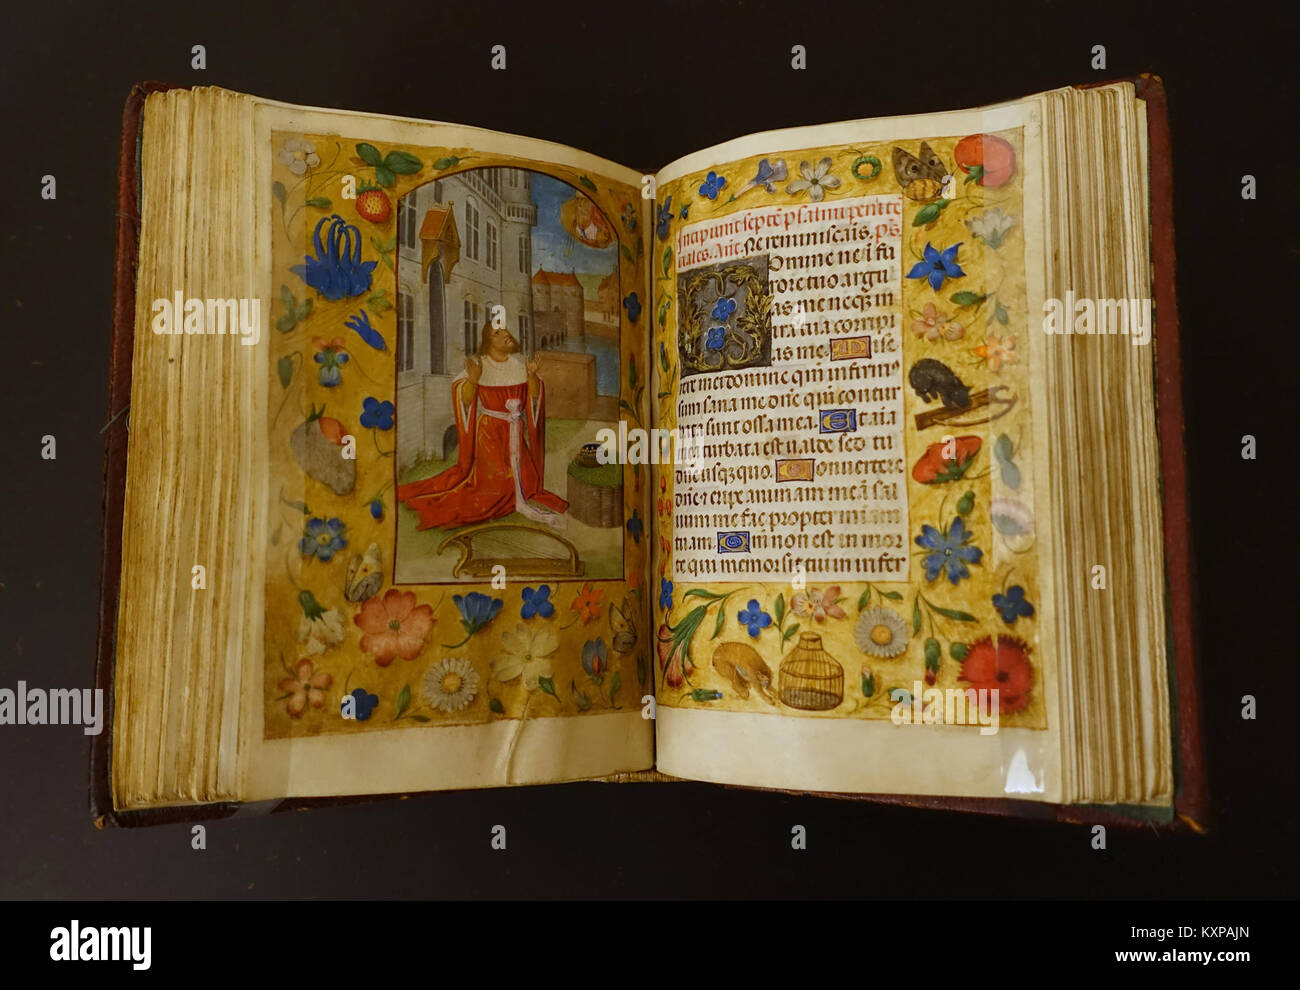 Incipiunt septē psalmi penitē
ciales. Añt. Ne reminiscaīs. Ps
Domine ne ī fu
rore tuo argu
as me neqꝫ in
ira tua compi
as me. Mise
rere mei domine qm̄ infirmꝰ
sum sana me dn̄e qm̄ contur
bata sunt ossa mea. Et aīa
mea turbata est ualde sed tu
dn̄e usqꝫ quo. Conuertere
dn̄e ⁊ eripe animam meā sal
uum me fac propter miām
tuam. Qm̄ non est in mor
te qui memor sit tui in infer
a
alamy
alamy
Image ID: KXPAJN
www.alamy.com